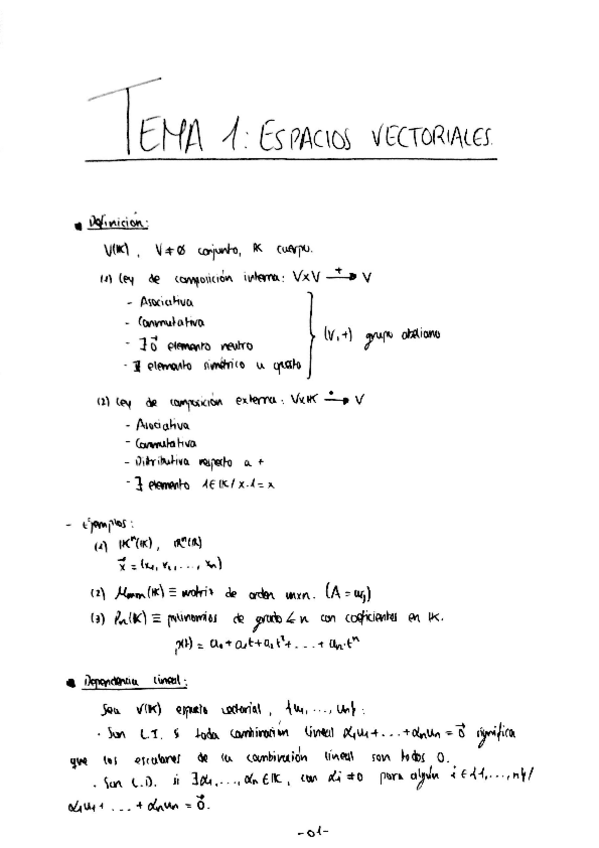 TEMA 1: ESPACIOS VECTORIALES.
Definición:
V(K), V≠∅ conjunto, K cuerpo.
(1) Ley de composición interna: VxV —+→ V
- Asociativa
- Conmutativa
- ∃ 0⃗ elemento neutro
- ∃ elemento simétrico u opuesto
(V,+) grupo abeliano
(2) Ley de composición externa: VxK —·→ V
- Asociativa
- Conmutativa
- Distributiva respecto a +
- ∃ elemento 1∈K/ x·1=x
- Ejemplos:
(1) Kⁿ(K), Rⁿ(R)
x⃗ = (x₁, x₂, ..., xₙ)
(2) Mmxn(K) ≡ matriz de orden mxn. (A = aij)
(3) Pn(K) ≡ polinomios de grado ≤ n con coeficientes en K.
p(t) = a₀ + a₁t + a₂t² + ... + aₙ·tⁿ
Dependencia lineal:
Sea V(K) espacio vectorial, {u₁, ..., uₙ}:
· Son L.I. si toda combinación lineal α₁u₁ + ... + αₙuₙ = 0⃗ significa
que los escalares de la combinación lineal son todos 0.
· Son L.D. si ∃α₁, ..., αₙ∈K, con αi ≠0 para algún i∈{1,...,n}/
α₁u₁ + ... + αₙuₙ = 0⃗.
-01-